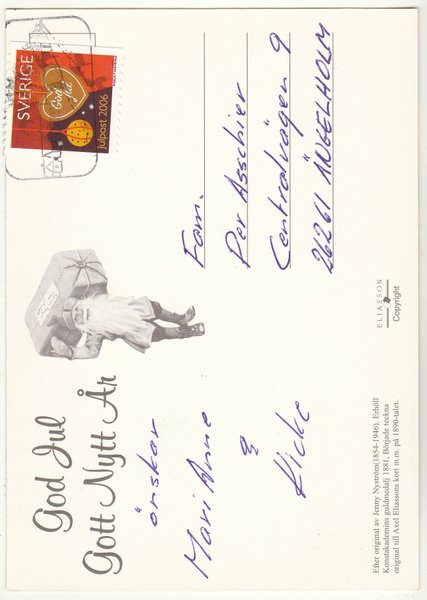 God Jul
Gott Nytt År
önskar
Mari Anne
&
Kicke
SVERIGE
God Jul
Julpost 2006
Fam.
Per Asschier
Centralvägen 9
26261 ÄNGELHOLM
ELIASSON
Copyright
Efter original av Jenny Nyström(1854-1946). Erhöll
Konstakademins guldmedalj 1881, Började teckna
original till Axel Eliassons kort m.m. på 1890-talet.